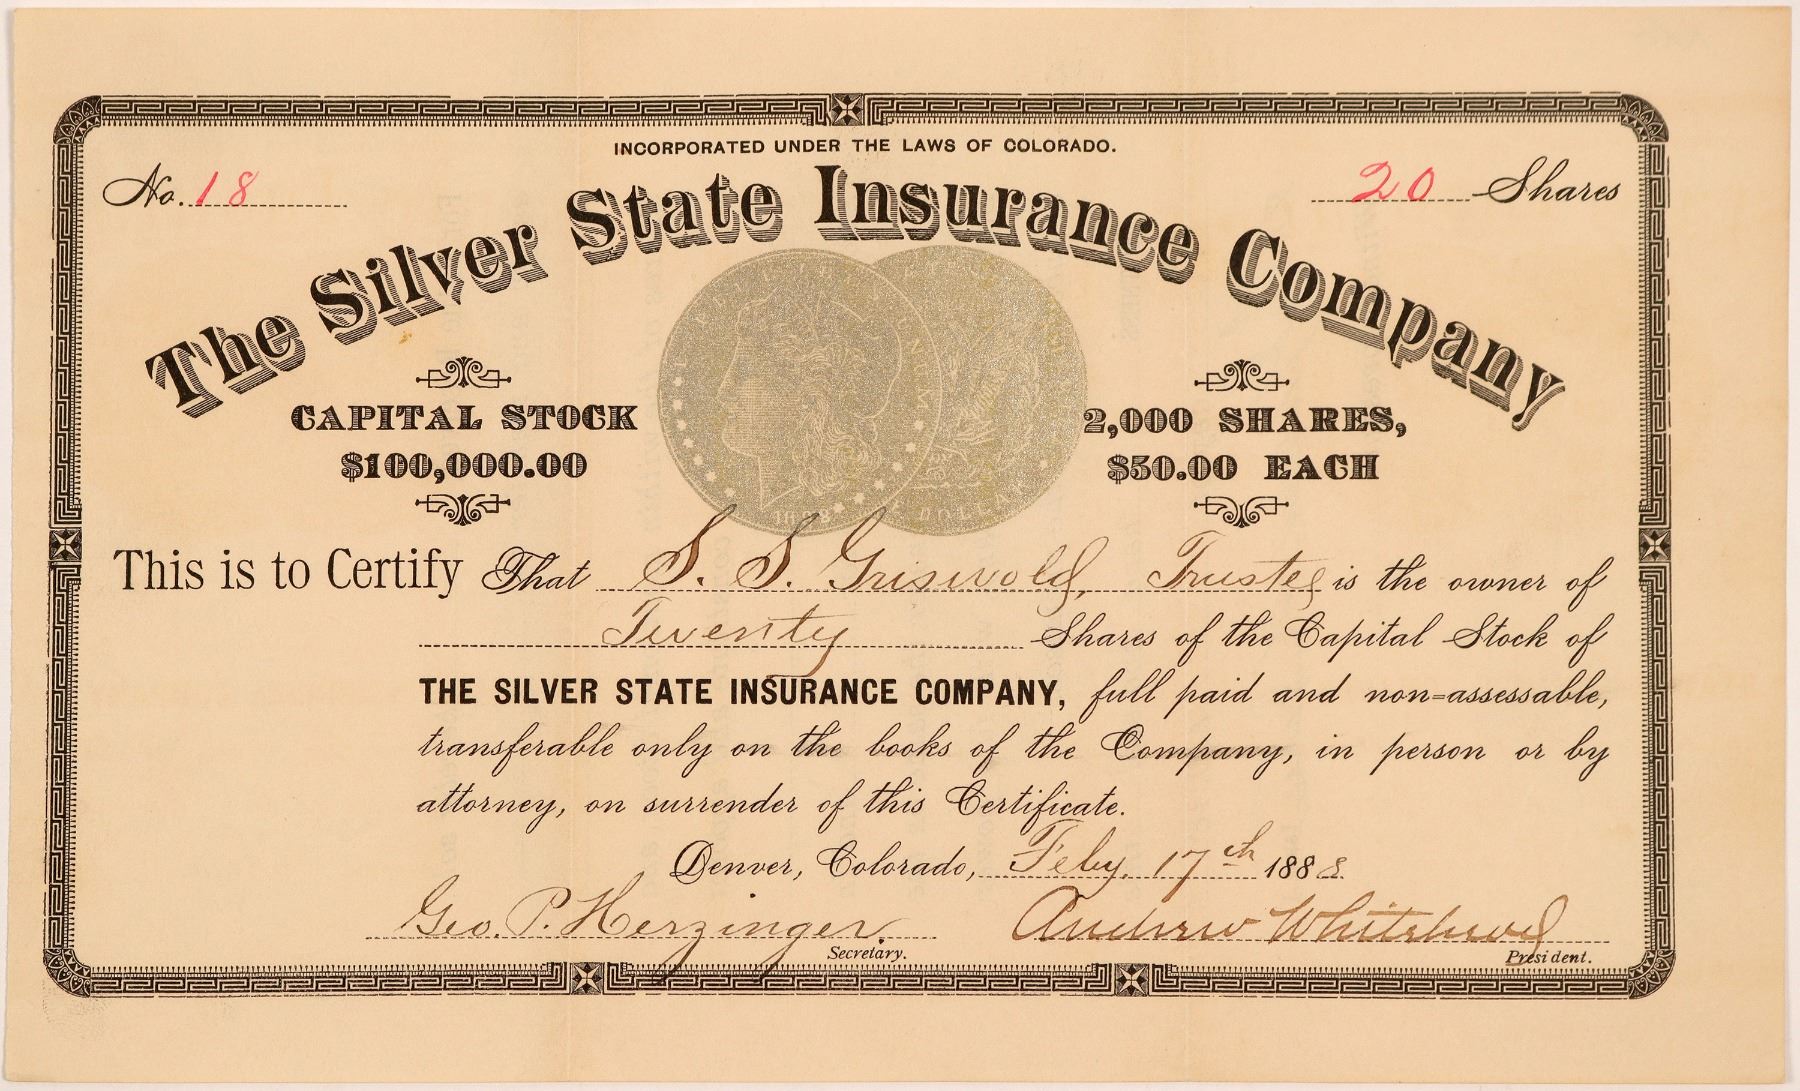 INCORPORATED UNDER THE LAWS OF COLORADO.
No. 18
20 Shares
The Silver State Insurance Company
CAPITAL STOCK
$100,000.00
2,000 SHARES,
$50.00 EACH
This is to Certify That S. S. Griswold, Trustee is the owner of
Twenty Shares of the Capital Stock of
THE SILVER STATE INSURANCE COMPANY, full paid and non=assessable,
transferable only on the books of the Company, in person or by
attorney, on surrender of this Certificate.
Denver, Colorado, Feby. 17th 1888
Geo. P. Herzinger Andrew Whitehead
Secretary.
President.